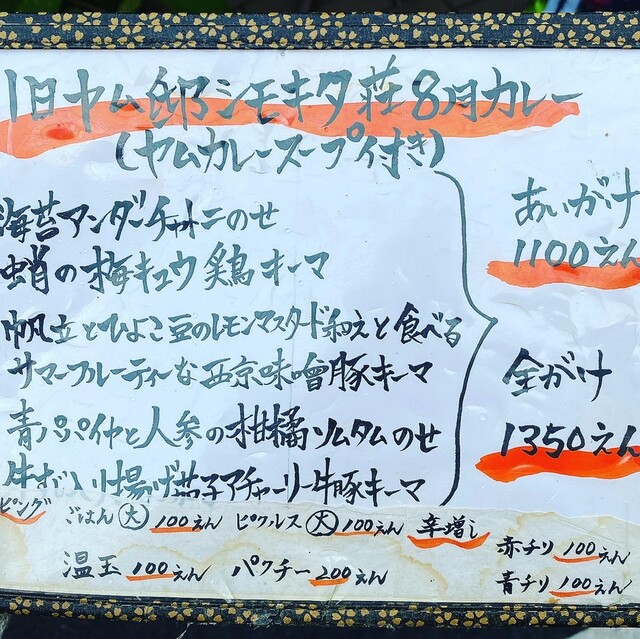 旧ヤム邸シモキタ荘8月カレー
(ヤムカレースープ付き)
海苔アンダーチャトニのせ
蛸の梅キュウ鶏キーマ
帆立とひよこ豆のレモンマスタード和えと食べる
サマーフルーティーな西京味噌豚キーマ
青パパイヤと人参の柑橘ソムタムのせ
牛すじ入り揚げ茄子アチャーリー牛豚キーマ
あいがけ
1100えん
全がけ
1350えん
ピング ごはん(大)100えん ピクルス(大)100えん 辛増し
赤チリ100えん
温玉100えん パクチー200えん
青チリ100えん